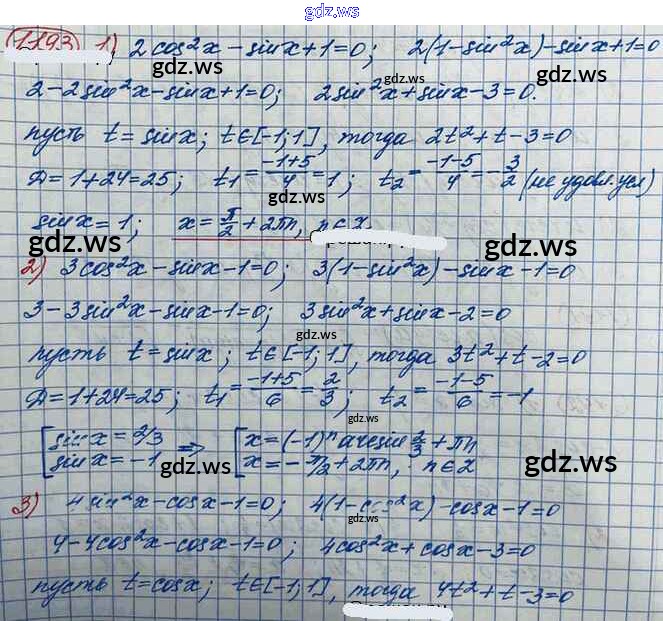 gdz.ws
1193 1) 2cos²x - sinx + 1 = 0; 2(1 - sin²x) - sinx + 1 = 0
2 - 2sin²x - sinx + 1 = 0; 2sin²x + sinx - 3 = 0.
gdz.ws gdz.ws
пусть t = sinx; t ∈ [-1; 1], тогда 2t² + t - 3 = 0
Д = 1 + 24 = 25; t₁ = (-1+5)/4 = 1; t₂ = (-1-5)/4 = -3/2 (не удовл. усл)
gdz.ws
sinx = 1; x = π/2 + 2πn, n ∈ Z
gdz.ws gdz.ws
2) 3cos²x - sinx - 1 = 0; 3(1 - sin²x) - sinx - 1 = 0
3 - 3sin²x - sinx - 1 = 0; 3sin²x + sinx - 2 = 0
gdz.ws
пусть t = sinx; t ∈ [-1; 1], тогда 3t² + t - 2 = 0
gdz.ws gdz.ws
Д = 1 + 24 = 25; t₁ = (-1+5)/6 = 2/3; t₂ = (-1-5)/6 = -1
gdz.ws
[sinx = 2/3 ⇒ [x = (-1)ⁿ arcsin 2/3 + πn
[sinx = -1 [x = -π/2 + 2πn, n ∈ Z
gdz.ws gdz.ws
3) 4sin²x - cosx - 1 = 0; 4(1 - cos²x) - cosx - 1 = 0
gdz.ws
4 - 4cos²x - cosx - 1 = 0; 4cos²x + cosx - 3 = 0
gdz.ws gdz.ws
пусть t = cosx; t ∈ [-1; 1], тогда 4t² + t - 3 = 0
gdz.ws